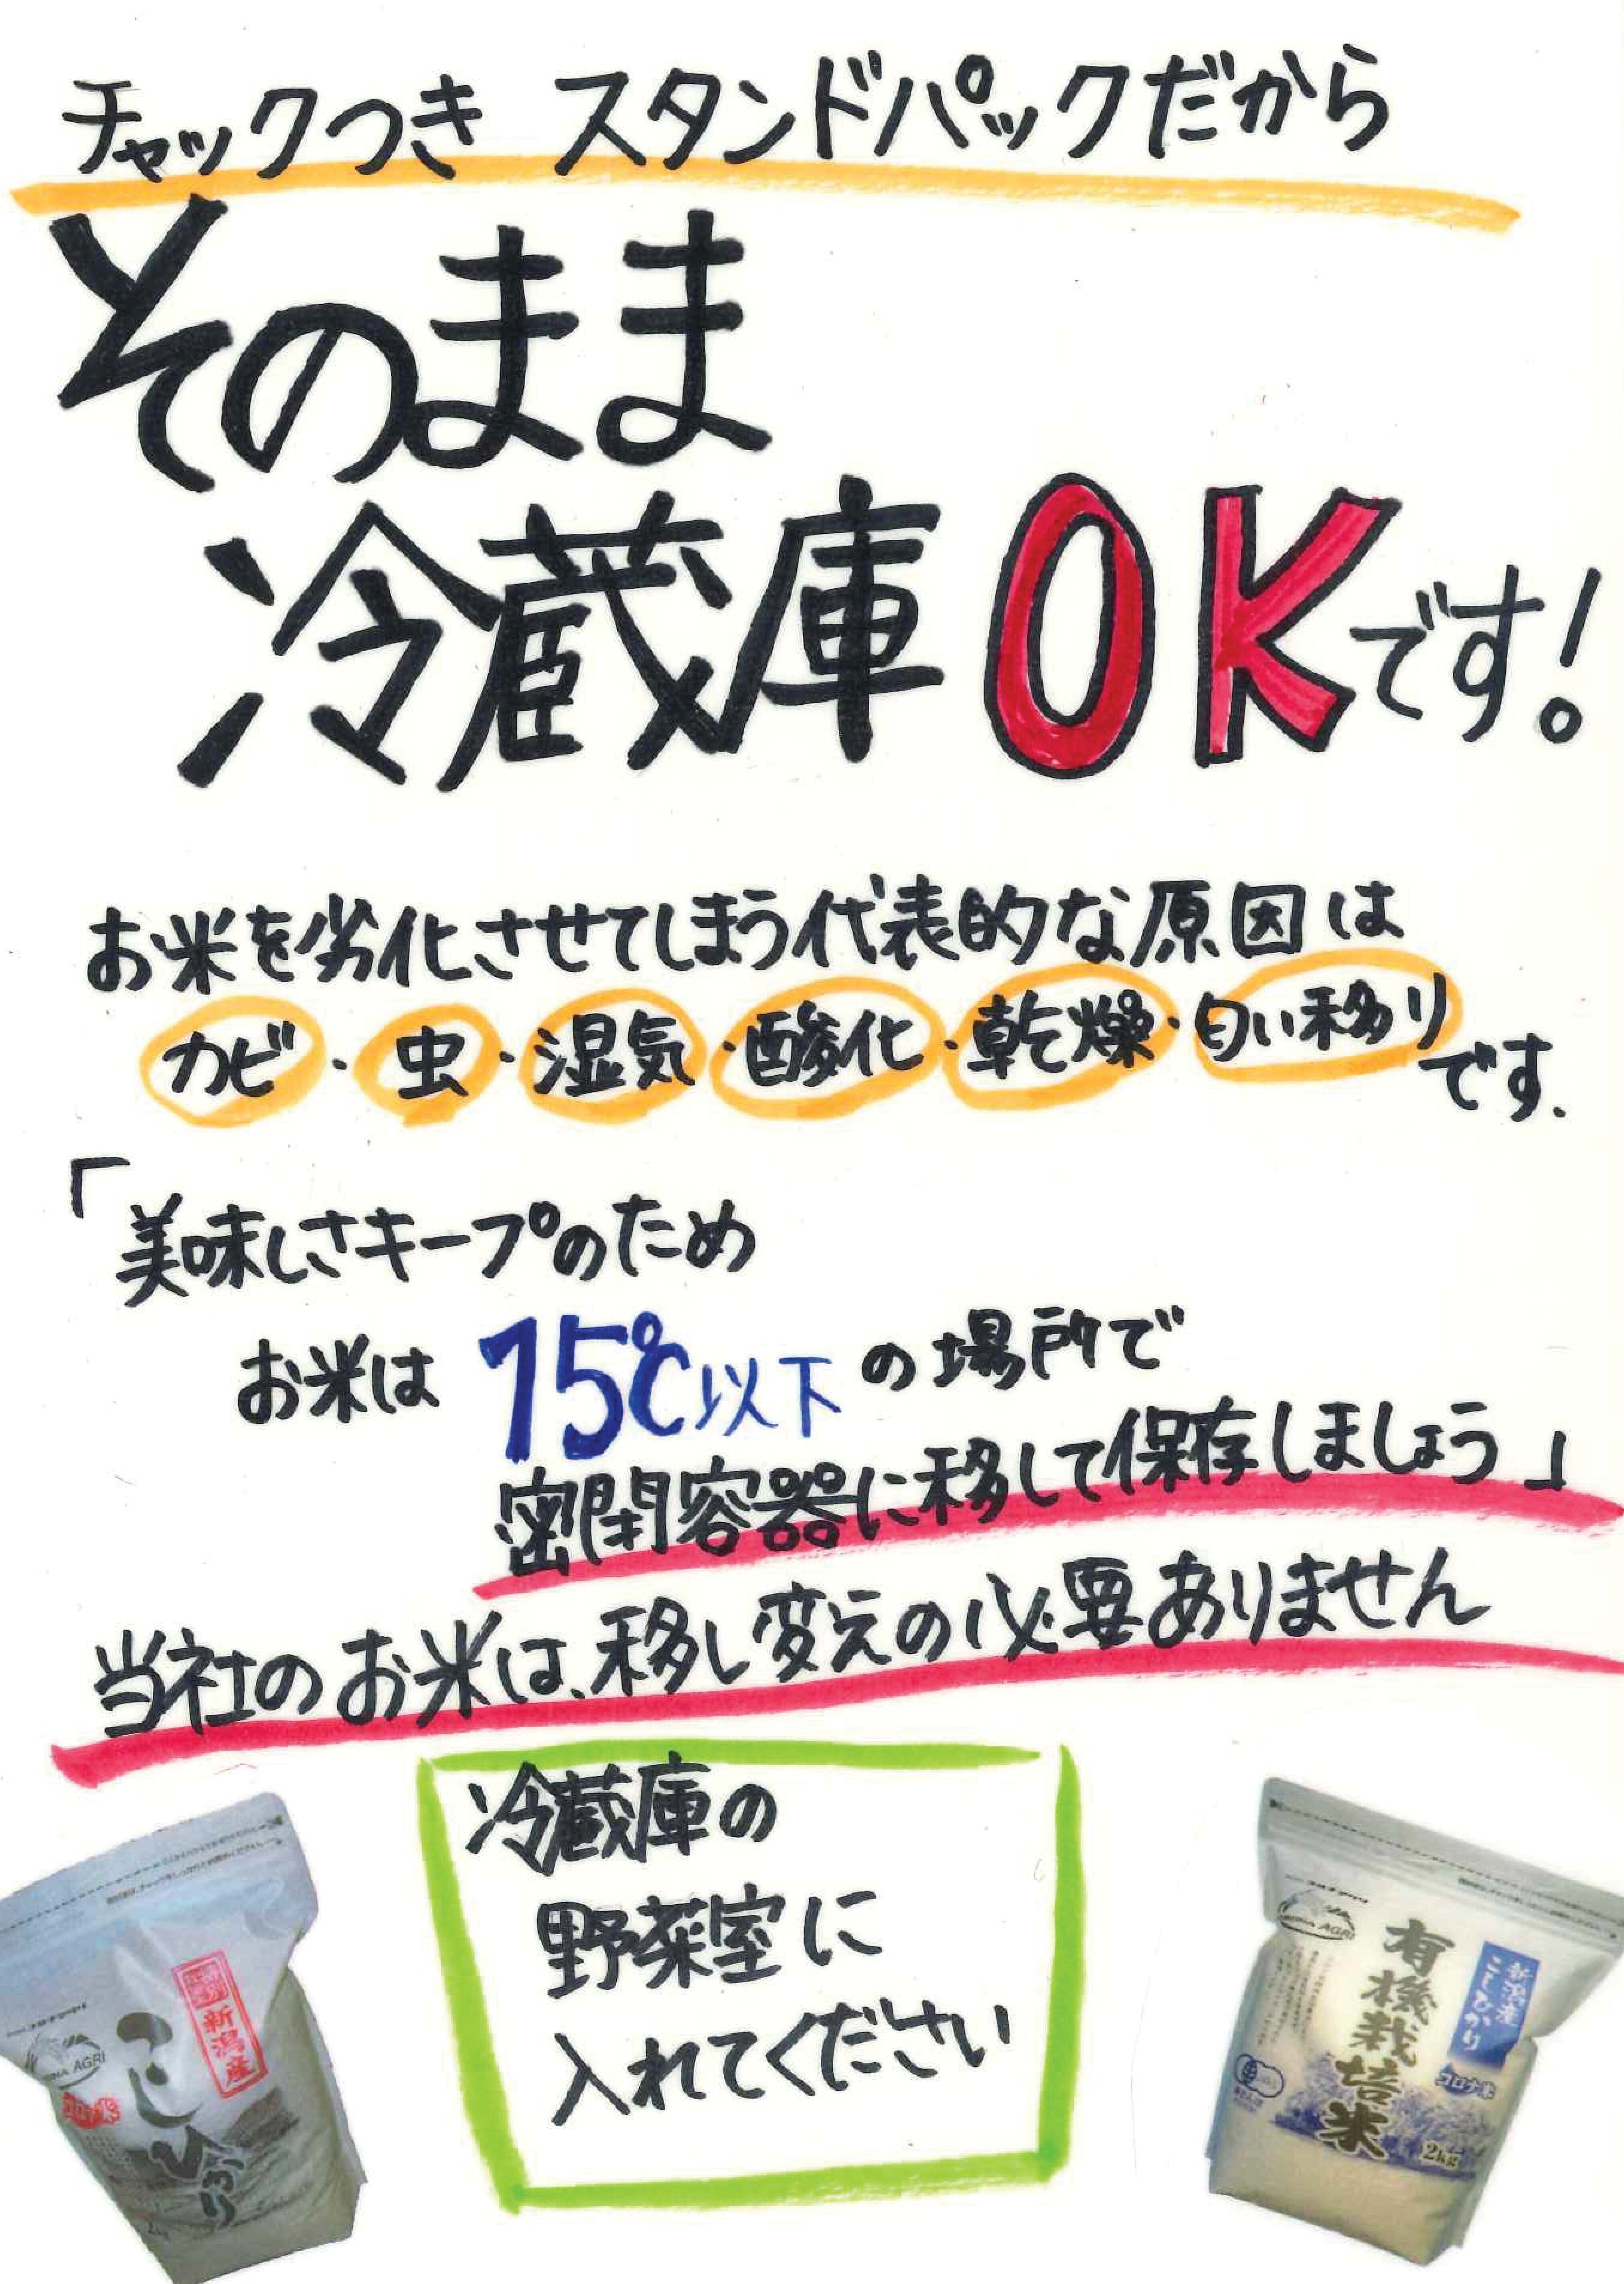 チャックつき スタンドパックだから
そのまま
冷蔵庫OKです!
お米を劣化させてしまう代表的な原因は
カビ・虫・湿気・酸化・乾燥・匂い移り
です.
「美味しさキープのため
お米は 15℃以下 の場所で
密閉容器に移して保存しましょう」
当社のお米は、移し変えの必要ありません
冷蔵庫の
野菜室に
入れてください
新潟産
こしひかり
コロナ米
AGRI
新潟産
こしひかり
有機栽培米
コロナ米
2kg